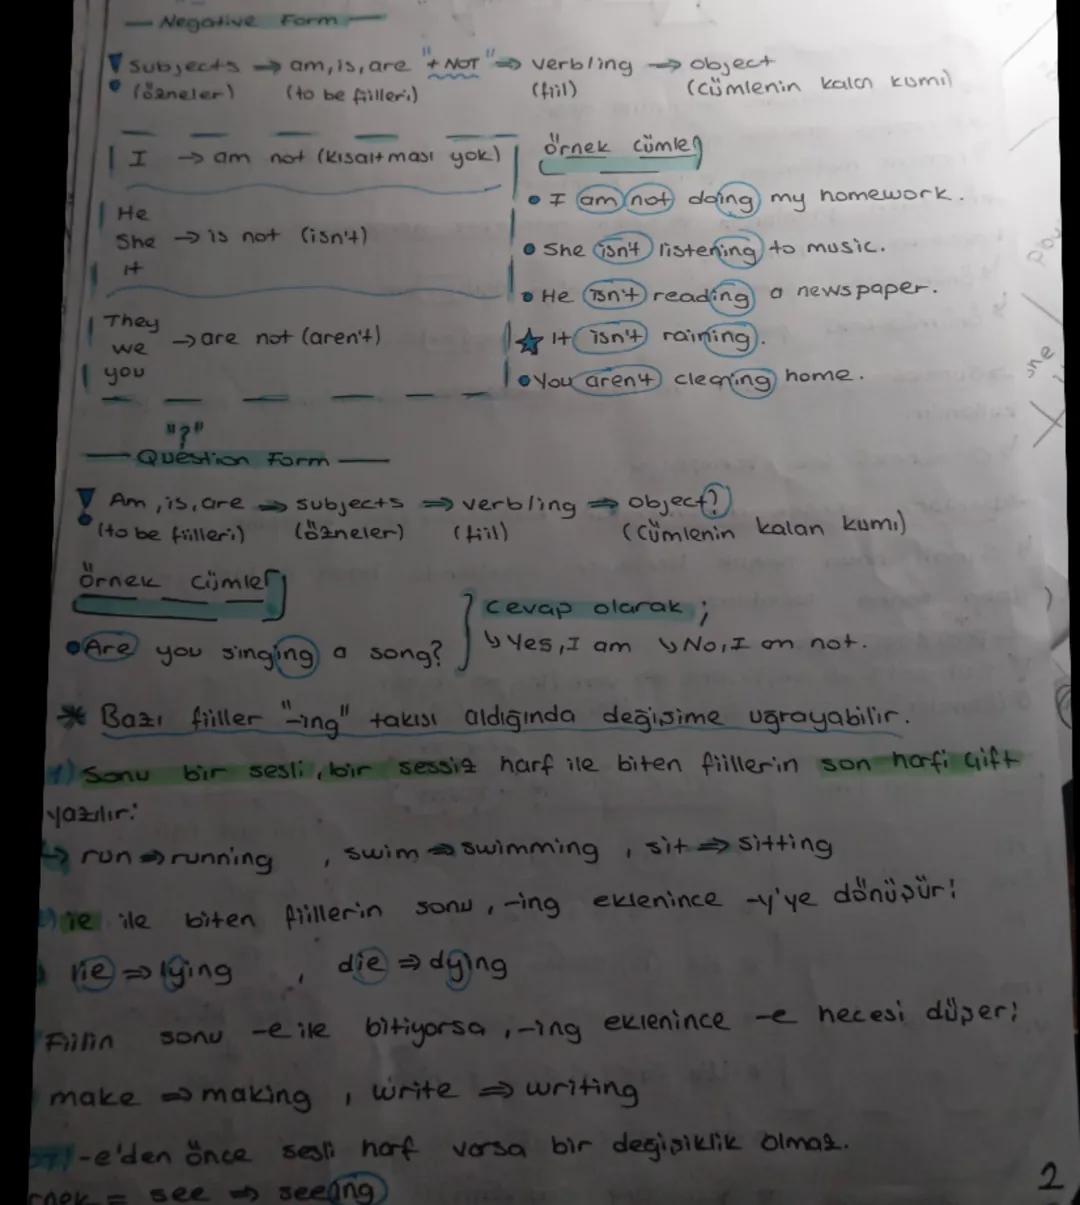 Negative Form
Subjects → am, is, are "+ NOT" ⇒ verbling → object
(özneler) (to be fiilleri) (fiil) (cümlenin kalan kısmı)
I → am not (kısaltması yok)
He
She → is not (isn't)
it
They
we → are not (aren't)
you
örnek cümle
• I am not doing my homework.
• She isn't listening to music.
• He isn't reading a newspaper.
☆ It isn't raining.
• You aren't cleaning home.
"?"
Question Form
Am, is, are ⇒ subjects ⇒ verbling ⇒ object?
(to be fiilleri) (özneler) (fiil) (cümlenin kalan kısmı)
örnek cümle
• Are you singing a song?
cevap olarak;
↳ Yes, I am ↳ No, I am not.
* Bazı fiiller "-ing" takısı aldığında değişime uğrayabilir.
1) Sonu bir sesli, bir sessiz harf ile biten fiillerin son harfi çift
yazılır:
↳ run ⇒ running, swim ⇒ swimming, sit ⇒ sitting
2) ie ile biten fiillerin sonu, -ing eklenince -y'ye dönüşür:
lie ⇒ lying, die ⇒ dying
Fiilin sonu -e ile bitiyorsa, -ing eklenince -e hecesi düşer:
make ⇒ making, write ⇒ writing
-e'den önce sesli harf varsa bir değişiklik olmaz.
= see ⇒ seeing
2